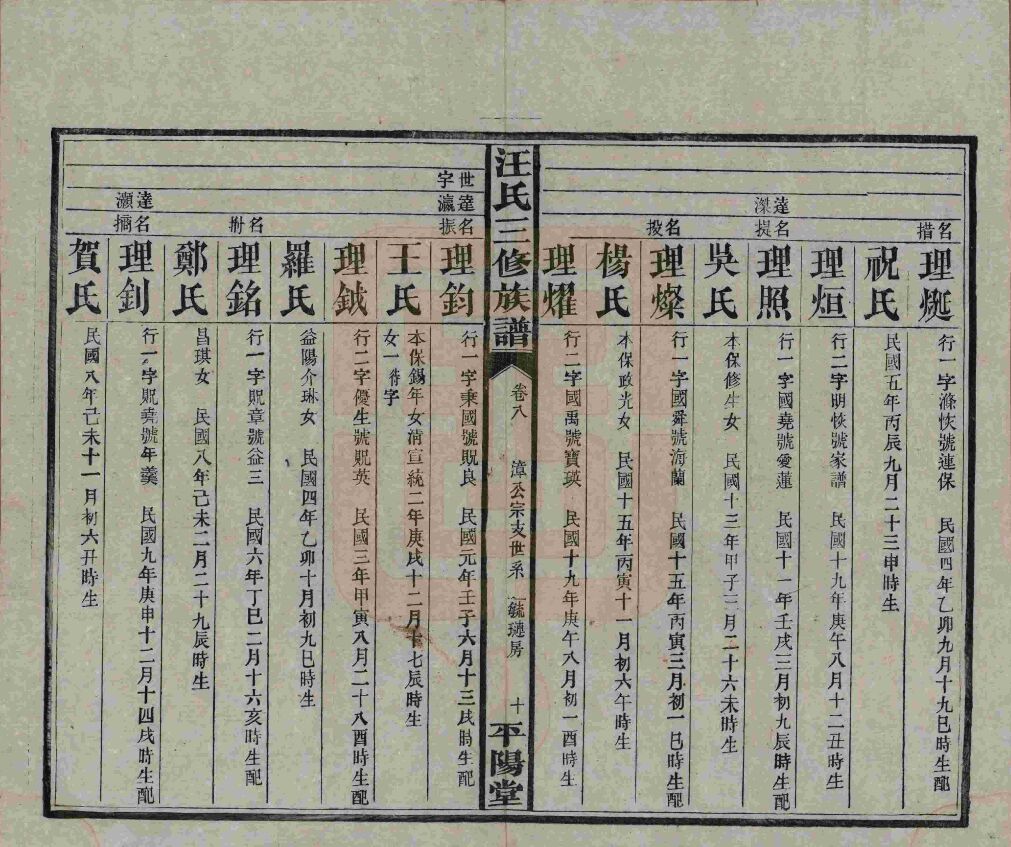 名措
理烻 行一字滌恢號連保 民國四年乙卯九月十九巳時生配
祝氏 民國五年丙辰九月二十三申時生
理烜 行二字明恢號家譜 民國十九年庚午八月十二丑時生
達深
名提
理照 行一字國堯號愛蓮 民國十一年壬戌三月初九辰時生配
吳氏 本保修生女 民國十三年甲子三月二十六未時生
名投
理燦 行一字國舜號海蘭 民國十五年丙寅三月初一巳時生配
楊氏 本保政光女 民國十五年丙寅十一月初六午時生
理燿 行二字國禹號寶瑛 民國十九年庚午八月初一酉時生
汪氏三修族譜 卷八 漳公宗支世系 毓璉房 十 平陽堂
世字
達瀛
名振
理鈞 行一字秉國號貺良 民國元年壬子六月十三戌時生配
王氏 本保錫年女清宣統二年庚戌十二月十七辰時生
女一待字
理鉞 行二字優生號貺英 民國三年甲寅八月二十八酉時生配
羅氏 益陽介琳女 民國四年乙卯十月初九巳時生
名拊
理銘 行一字貺章號益三 民國六年丁巳二月十六亥時生配
鄭氏 昌琪女 民國八年己未二月二十九辰時生
達灝
名搢
理釗 行一字貺堯號年羹 民國九年庚申十二月十四戌時生配
賀氏 民國八年己未十一月初六丑時生